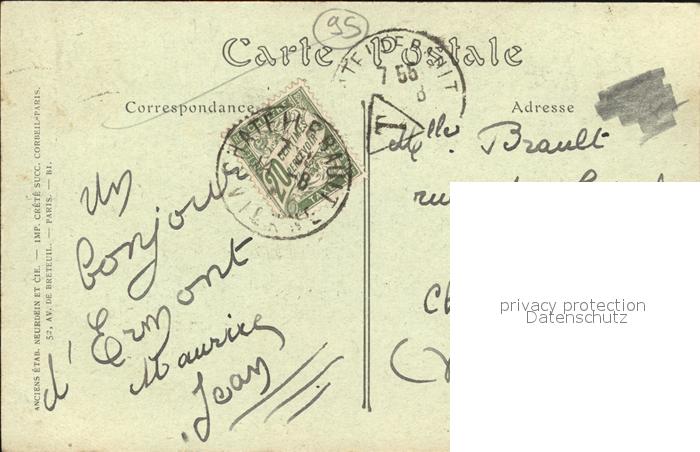 95
Carte Postale
Correspondance
Adresse
ANCIENS ÉTAB. NEURDEIN ET CIE. — IMP. CRÉTÉ SUCC. CORBEIL-PARIS.
52, AV. DE BRETEUIL. — PARIS. — B1.
7 55
8
T
20
Un
bonjour
d'Ermont
Maurice
Jean
Melle. Brault
privacy protection
Datenschutz